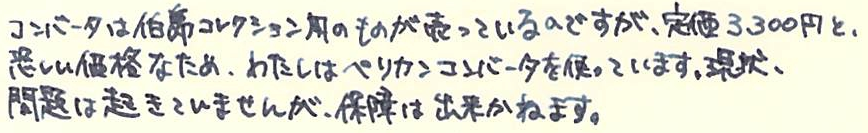 コンバータは伯爵コレクション用のものが売っているのですが、定価3,300円と、
恐しい価格なため、わたしはペリカンコンバータを使っています。現状、
問題は起きていませんが、保障は出来かねます。